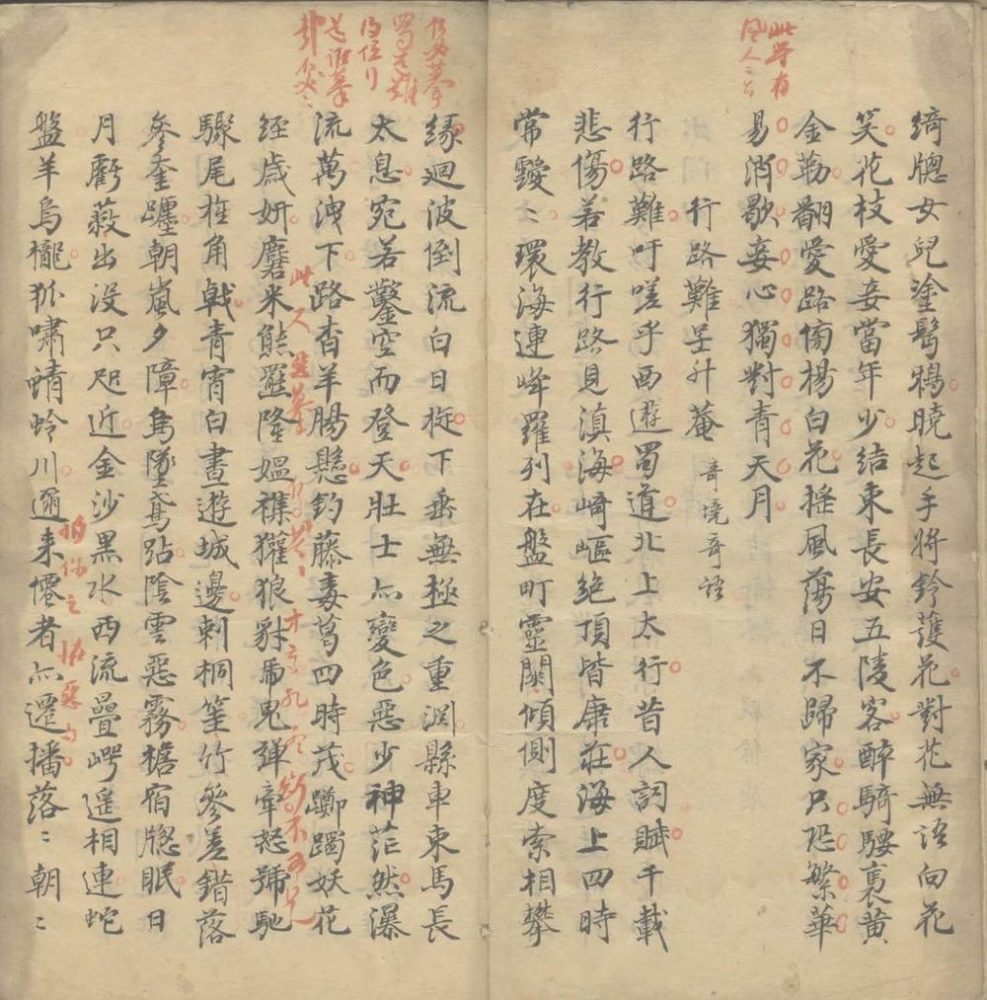 此等有
風人之旨
綺牕女兒塗髩鴉曉起手將鈴護花對花無語向花
笑花枝愛妾當年少結束長安五陵客醉騎騕褭黃
金勒翩愛路傍楊白花搖風蕩日不歸家只恐繁華
易消歇妾心獨對青天月
行路難呈升菴 奇境奇語
行路難吁嗟乎西遊蜀道北上太行昔人詞賦千載
悲傷若教行路見滇海崎嶇絕頂皆康莊海上四時
常靉〻環海連峰羅列在盤町靈關傾側度索相攀
緣迴波倒流白日旋下垂無極之重淵縣車束馬長
太息宛若鑿空而登天壯士亦變色惡少神茫然瀑
流萬洩下路杳羊腸懸鈎藤毒萏四時茂躑躅妖花
經歲妍磨米熊羆隆媼襍玃狼豺虎鬼彈牽怒號馳
驟尾柱角戟青宵白晝遊城邊刺桐篁竹參差錯落
參奎躔朝嵐夕障烏墜鳶跕陰雲惡霧簷宿牕眠日
月虧蔽出沒只咫近金沙黑水西流疊崿遥相連蛇
盤羊烏櫳狐嘯蜻蛉川邇来僊者亦遷播落〻朝〻